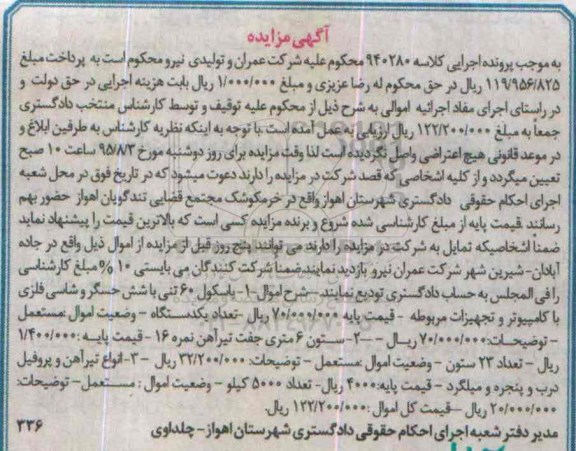 آگهی مزایده
به موجب پرونده اجرایی کلاسه ۹۴۰۲۸۰ محکوم علیه شرکت عمران و تولیدی نیرو محکوم است به پرداخت مبلغ
۱۱۹/۹۵۶/۸۲۵ ریال در حق محکوم له رضا عزیزی و مبلغ ۱/۰۰۰/۰۰۰ ریال بابت هزینه اجرایی در حق دولت و
در راستای اجرای مفاد اجرائیه اموالی به شرح ذیل از محکوم علیه توقیف و توسط کارشناس منتخب دادگستری
جمعا به مبلغ ۱۲۲/۲۰۰/۰۰۰ ریال ارزیابی به عمل آمده است .با توجه به اینکه نظریه کارشناس به طرفین ابلاغ و
در موعد قانونی هیچ اعتراضی واصل نگردیده است لذا وقت مزایده برای روز دوشنبه مورخ ۹۵/۸/۳ ساعت ۱۰ صبح
تعیین میگردد و از کلیه اشخاصی که قصد شرکت در مزایده را دارند دعوت میشود که در تاریخ فوق در محل شعبه
اجرای احکام حقوقی دادگستری شهرستان اهواز واقع در خرمکوشک مجتمع قضایی تندگویان اهواز حضور بهم
رسانند. قیمت پایه از مبلغ کارشناسی شده شروع و برنده مزایده کسی است که بالاترین قیمت را پیشنهاد نماید
ضمنا اشخاصیکه تمایل به شرکت در مزایده را دارند می توانند پنج روز قبل از مزایده از اموال ذیل واقع در جاده
آبادان- شیرین شهر شرکت عمران نیرو بازدید نمایند.ضمنا شرکت کنندگان می بایستی ۱۰ % مبلغ کارشناسی
را فی المجلس به حساب دادگستری تودیع نمایند –شرح اموال -۱- باسکول ۶۰ تنی با شش حسگر و شاسی فلزی
با کامپیوتر و تجهیزات مربوطه - قیمت پایه ۷۰/۰۰۰/۰۰۰ ریال -تعداد یکدستگاه – وضعیت اموال :مستعمل
- توضیحات: ۷۰/۰۰۰/۰۰۰ ریال – -۲- ستون ۶ متری جفت تیرآهن نمره ۱۶ - قیمت پایه :۱/۴۰۰/۰۰۰
ریال – تعداد ۲۳ ستون – وضعیت اموال :مستعمل – توضیحات: ۳۲/۲۰۰/۰۰۰ ریال -۳- انواع تیرآهن و پروفیل
درب و پنجره و میلگرد - قیمت پایه: ۴۰۰۰ ریال- تعداد ۵۰۰۰ کیلو – وضعیت اموال : مستعمل – توضیحات:
۲۰/۰۰۰/۰۰۰ ریال –قیمت کل اموال :۱۲۲/۲۰۰/۰۰۰ ریال.
مدیر دفتر شعبه اجرای احکام حقوقی دادگستری شهرستان اهواز – چلداوی
۳۳۶